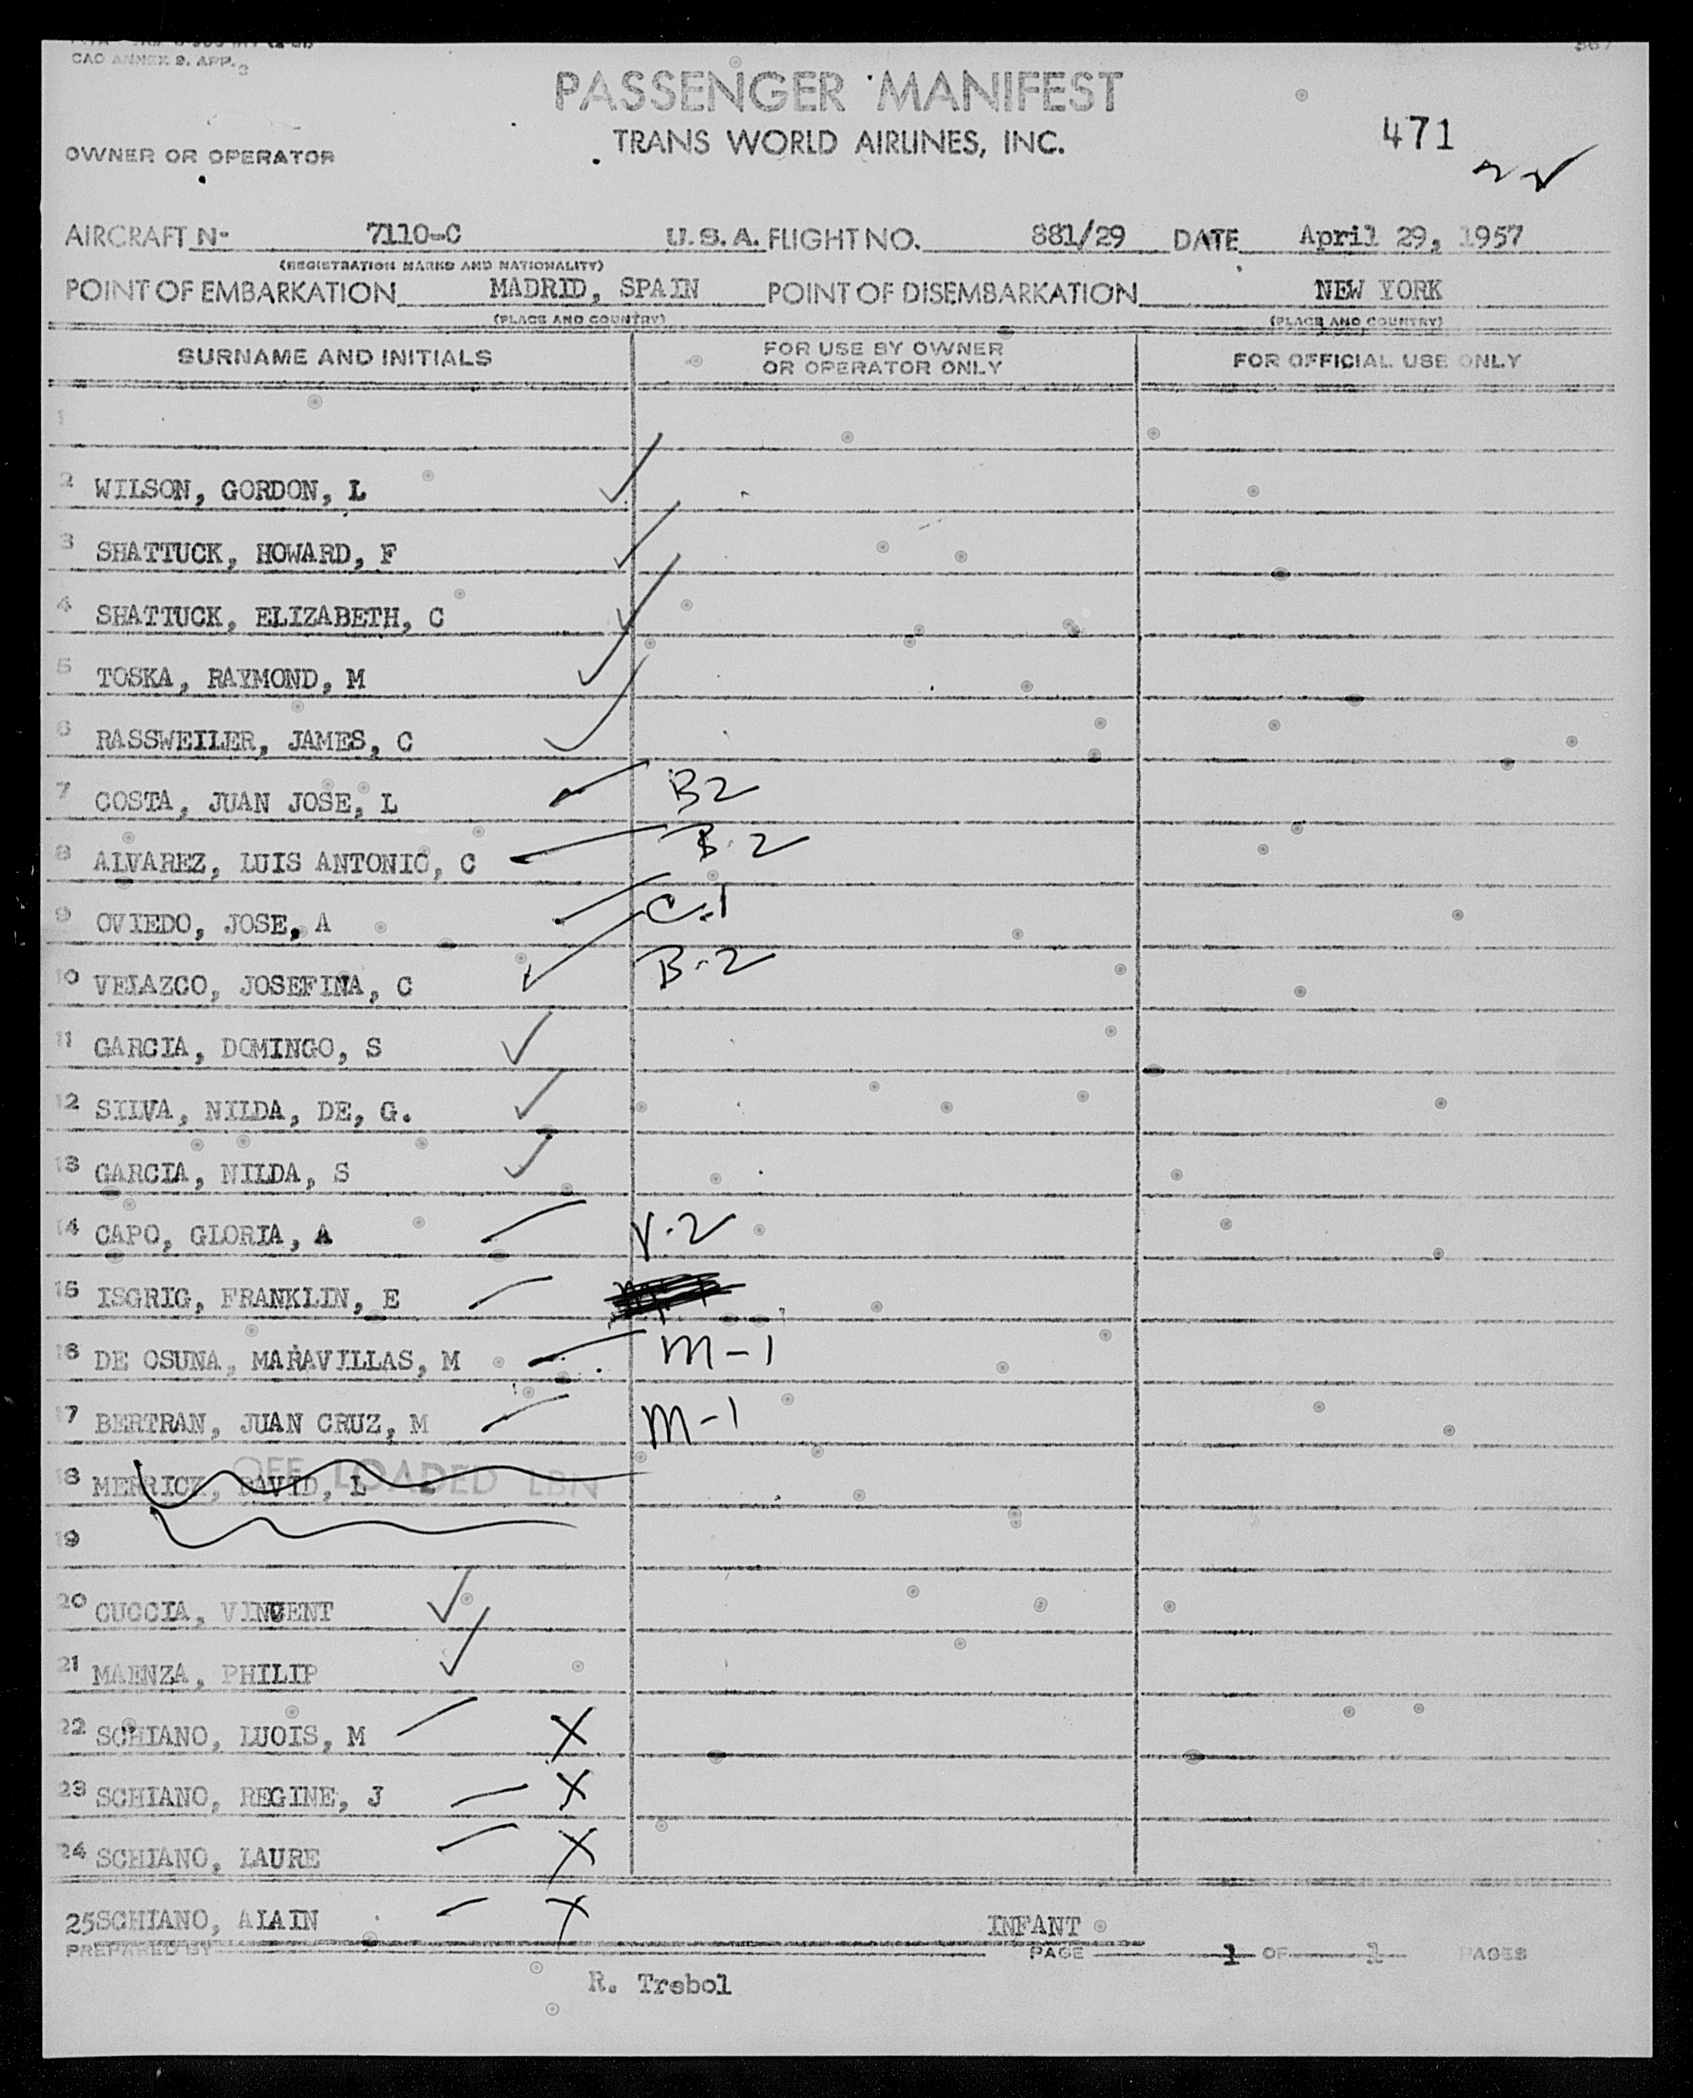 CAO ANNEX 9. APP. 3
PASSENGER MANIFEST
TRANS WORLD AIRLINES, INC.
471
OWNER OR OPERATOR
AIRCRAFT Nº 7110-C U.S.A. FLIGHT NO. 881/29 DATE April 29, 1957
(REGISTRATION MARKS AND NATIONALITY)
POINT OF EMBARKATION MADRID, SPAIN POINT OF DISEMBARKATION NEW YORK
(PLACE AND COUNTRY) (PLACE AND COUNTRY)
SURNAME AND INITIALS FOR USE BY OWNER OR OPERATOR ONLY FOR OFFICIAL USE ONLY
1
2 WILSON, GORDON, L
3 SHATTUCK, HOWARD, F
4 SHATTUCK, ELIZABETH, C
5 TOSKA, RAYMOND, M
6 RASSWEILER, JAMES, C
7 COSTA, JUAN JOSE, L B2
8 ALVAREZ, LUIS ANTONIO, C B-2
9 OVIEDO, JOSE, A C-1
10 VELAZCO, JOSEFINA, C B-2
11 GARCIA, DOMINGO, S
12 SILVA, NILDA, DE, G.
13 GARCIA, NILDA, S
14 CAPO, GLORIA, A V-2
15 ISGRIG, FRANKLIN, E
16 DE OSUNA, MARAVILLAS, M M-1
17 BERTRAN, JUAN CRUZ, M M-1
18 MERRICK, DAVID, L OFF LOADED LBN
19
20 CUCCIA, VINCENT
21 MAENZA, PHILIP
22 SCHIANO, LUOIS, M X
23 SCHIANO, REGINE, J X
24 SCHIANO, LAURE X
25 SCHIANO, ALAIN X INFANT
PREPARED BY PAGE 1 OF 1 PAGES
R. Trebol